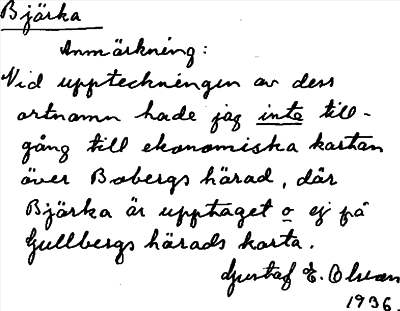 Bjärka
Anmärkning:
Vid uppteckningen av dess
ortnamn hade jag inte till-
gång till ekonomiska kartan
över Bobergs härad, där
Bjärka är upptaget o ej på
Gullbergs härads karta.
Gustaf E. Olsson
1936.